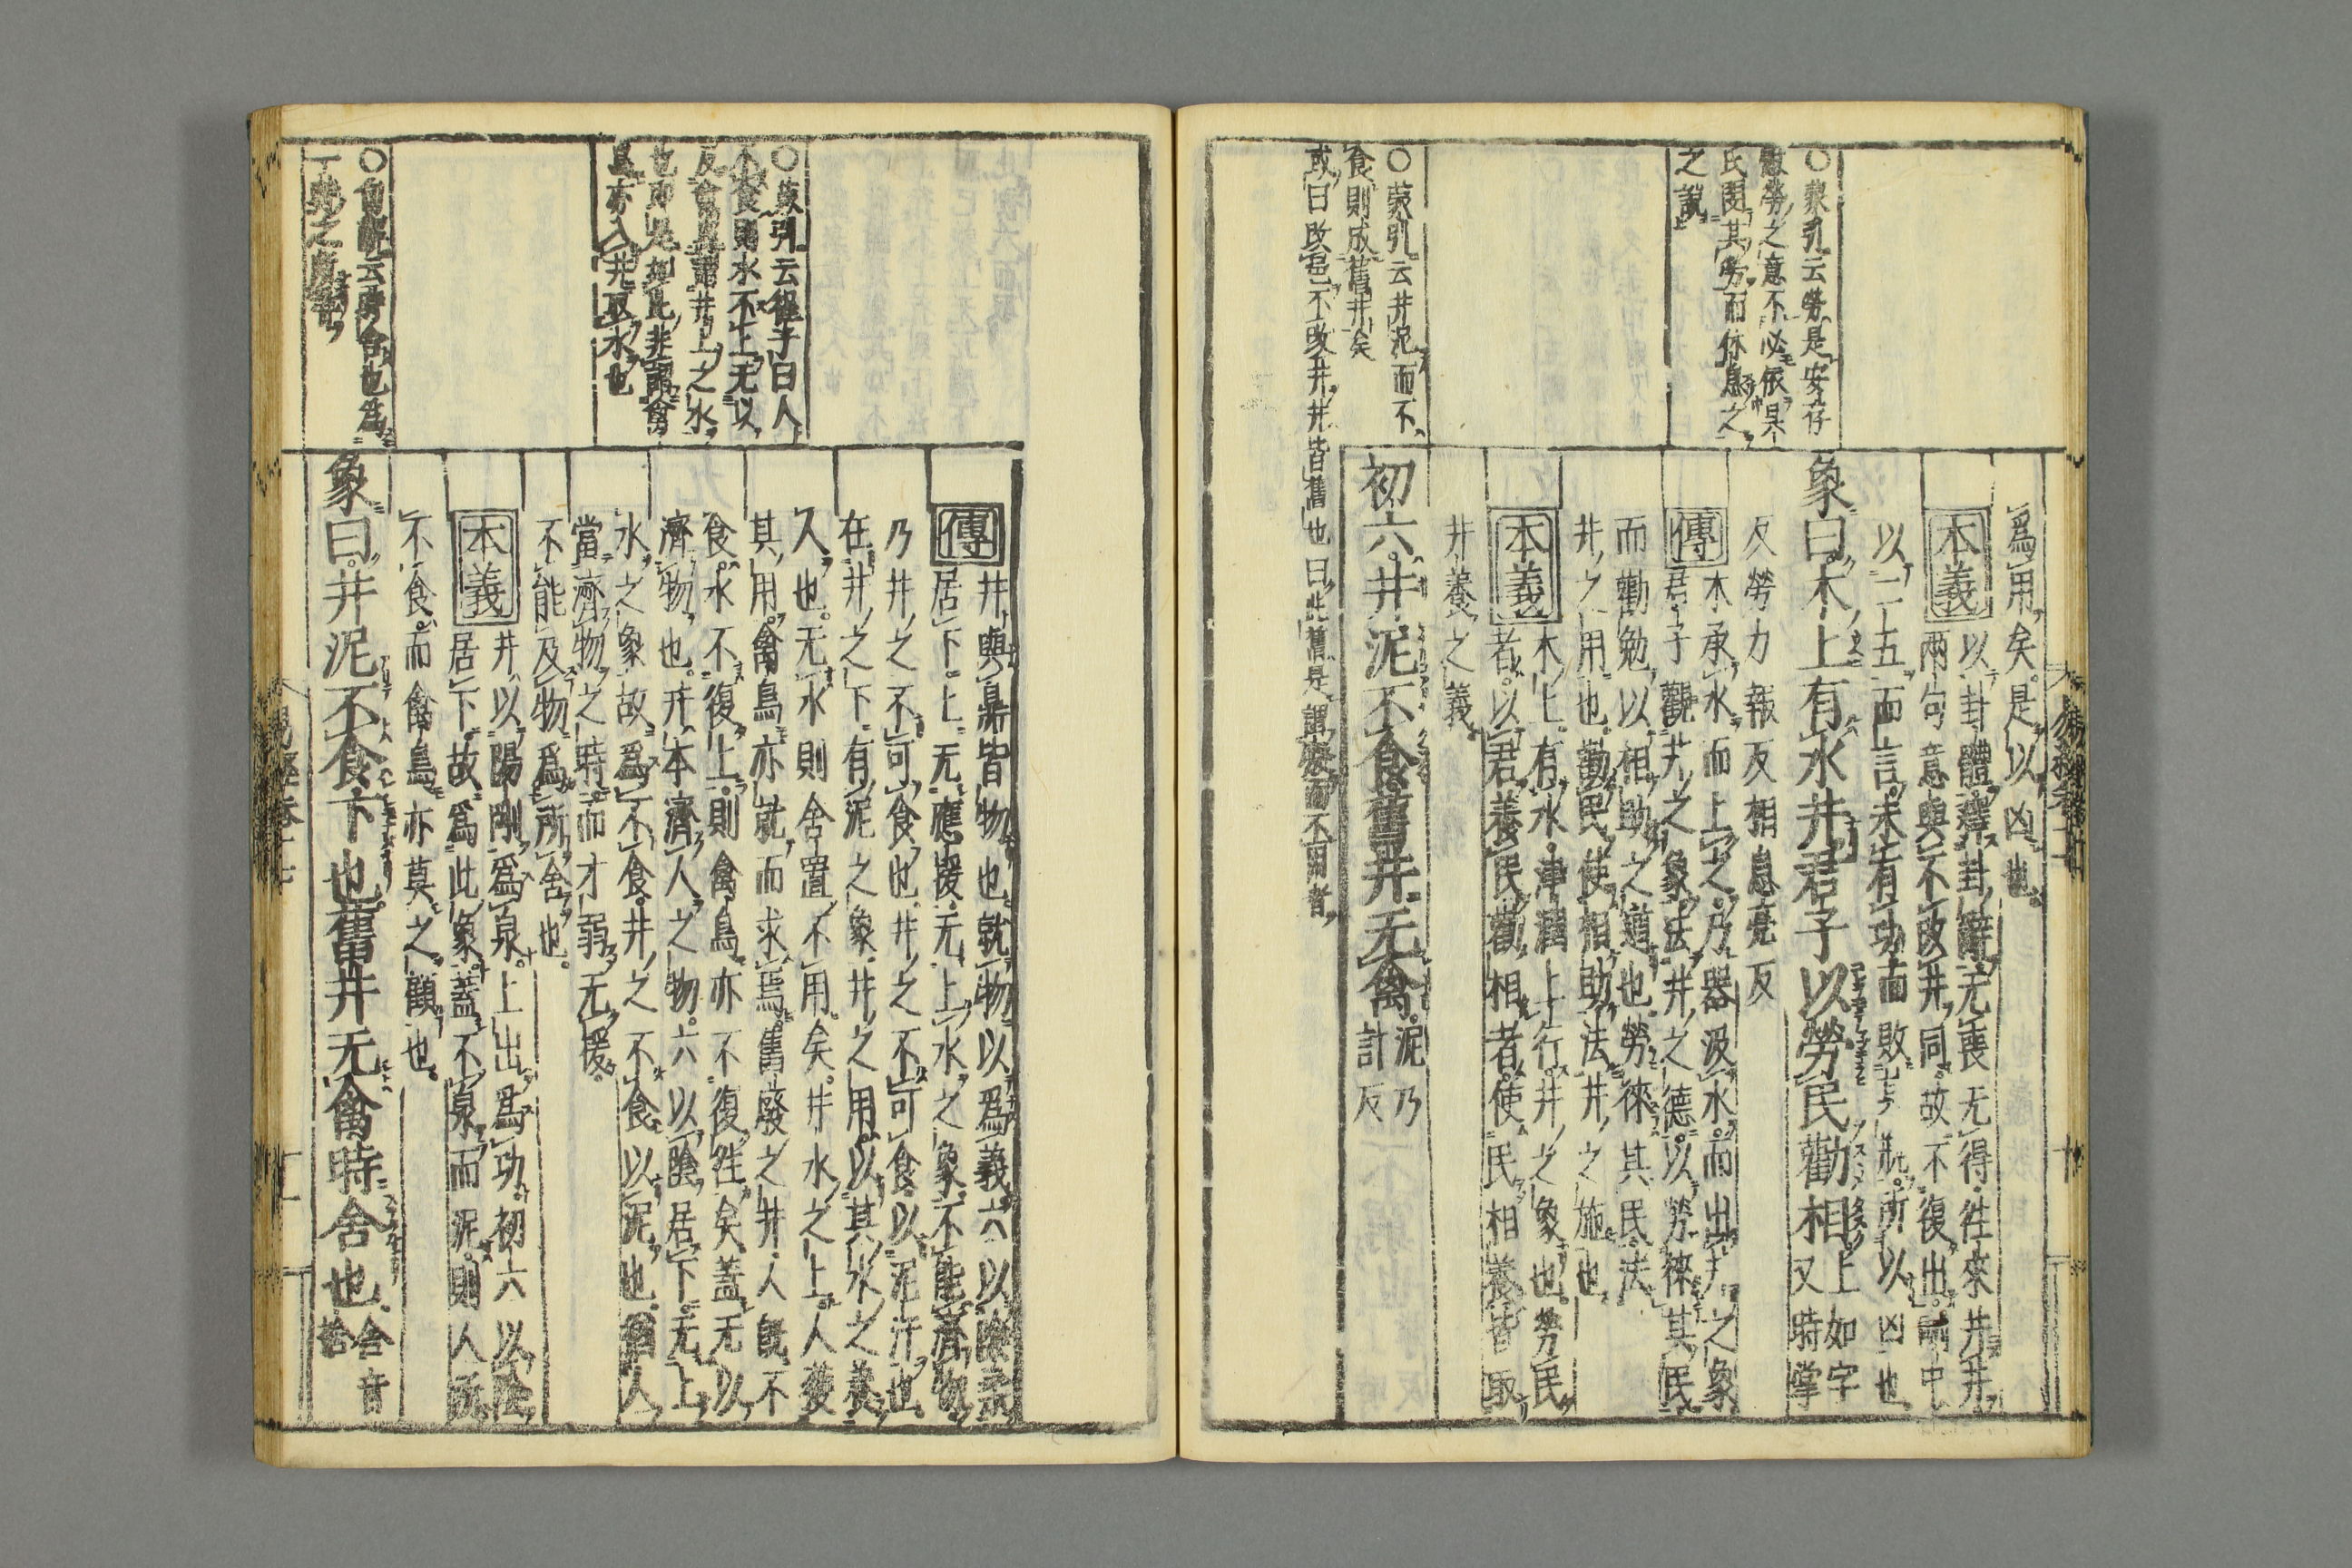 爲用矣是以凶也
本義
以卦體釋卦辭无喪无得往來井井
兩句意與不改井同故不復出剛中
以二五而言未有功而敗其瓶所以凶也
象曰木上有水井君子以勞民勸相
上如字
又時掌
反勞力報反相息亮反
傳
木承水而上之乃器汲水而出井之象
君子觀井之象法井之德以勞徠其民
而勸勉以相助之道也勞徠其民法
井之用也勸民使相助法井之施也
本義
木上有水津潤上行井之象也勞民
者以君養民勸相者使民相養皆取
井養之義
初六井泥不食舊井无禽
泥乃
計反
○蒙引云勞是安存
慰勞之意不必依果
氏閔其勞而休息之
之説
○蒙引云井泥而不
食則成舊井矣
或曰改邑不改井井皆舊也曰此舊是謂廢而不用者
傳
井與鼎皆物也就物以爲義六以陰柔
居下上无應援无上水之象不能濟物
乃井之不可食也井之不可食以泥汙也
在井之下有泥之象井之用以其水之養
人也无水則舍置不用矣井水之上人獲
其用禽鳥亦就而求焉舊廢之井人既不
食水不復上則禽鳥亦不復往矣蓋无以
濟物也井本濟人之物六以陰居下无上
水之象故爲不食井之不食以泥也猶人
當濟物之時而才弱无援
不能及物爲所舍也
本義
井以陽剛爲泉上出爲功初六以陰
居下故爲此象蓋不泉而泥則人所
不食而禽鳥亦莫之顧也
象曰井泥不食下也舊井无禽時舍也
舍音
捨
○蒙引云程子曰人
不食則水不上无以
及禽鳥謂井上之水
也即是如此非謂禽
鳥亦入井取水也
云時舍也爲